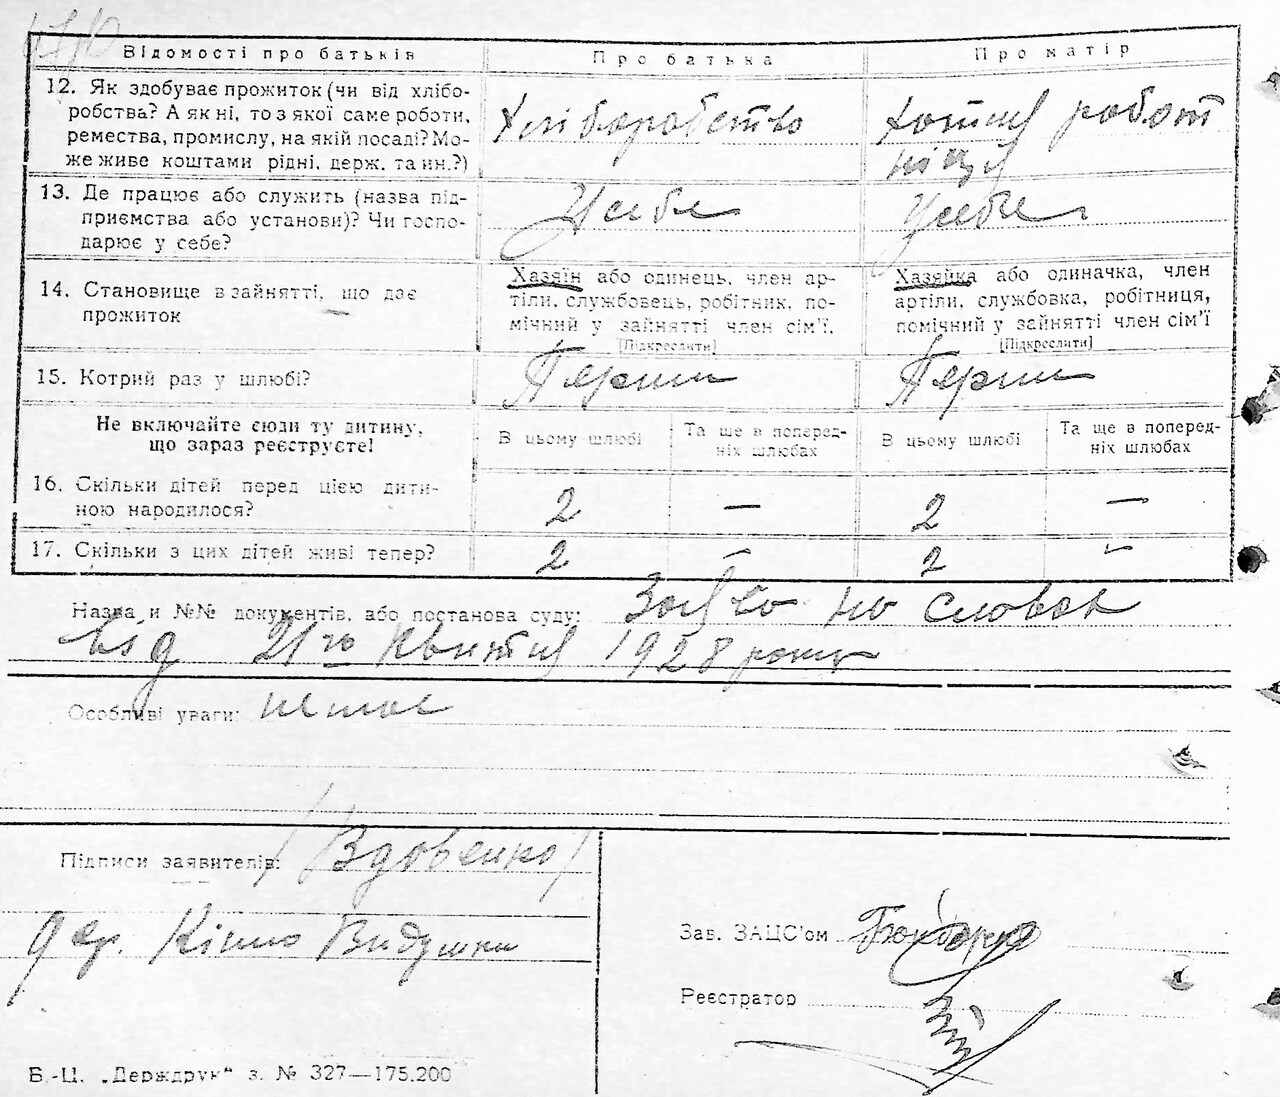 Відомості про батьків
Про батька
Про матір
12. Як здобуває прожиток (чи від хлібо-
робства? А як ні, то з якої саме роботи,
ремества, промислу, на якій посаді? Мо-
же живе коштами рідні, держ. та ин.?)
Хліборобство
робот
ніця
13. Де працює або служить (назва під-
приємства або установи)? Чи госпо-
дарює у себе?
У себе
У себе
14. Становище в зайнятті, що дає
прожиток
Хазяїн або одинець, член ар-
тіли, службовець, робітник, по-
мічний у зайнятті член сім'ї.
[Підкреслити]
Хазяйка або одиначка, член
артіли, службовка, робітниця,
помічний у зайнятті член сім'ї
[Підкреслити]
15. Котрий раз у шлюбі?
Перши
Перши
Не включайте сюди ту дитину,
що зараз реєструєте!
В цьому шлюбі
Та ще в поперед-
ніх шлюбах
В цьому шлюбі
Та ще в поперед-
ніх шлюбах
16. Скільки дітей перед цією дити-
ною народилося?
2
—
2
—
17. Скільки з цих дітей живі тепер?
2
-
2
-
Назва и №№ документів, або постанова суду: по словах
від 21го Квітня 1928 року
Особливі уваги: немає
Підписи заявителів: /Вдовенко/
дер.
Зав. ЗАЦС'ом
Реєстратор
Б.-Ц. „Держдрук" з. № 327—175.200